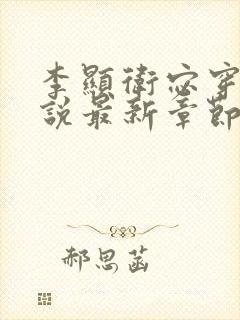 李顯衛宓穿
說最新章節
郝思菡